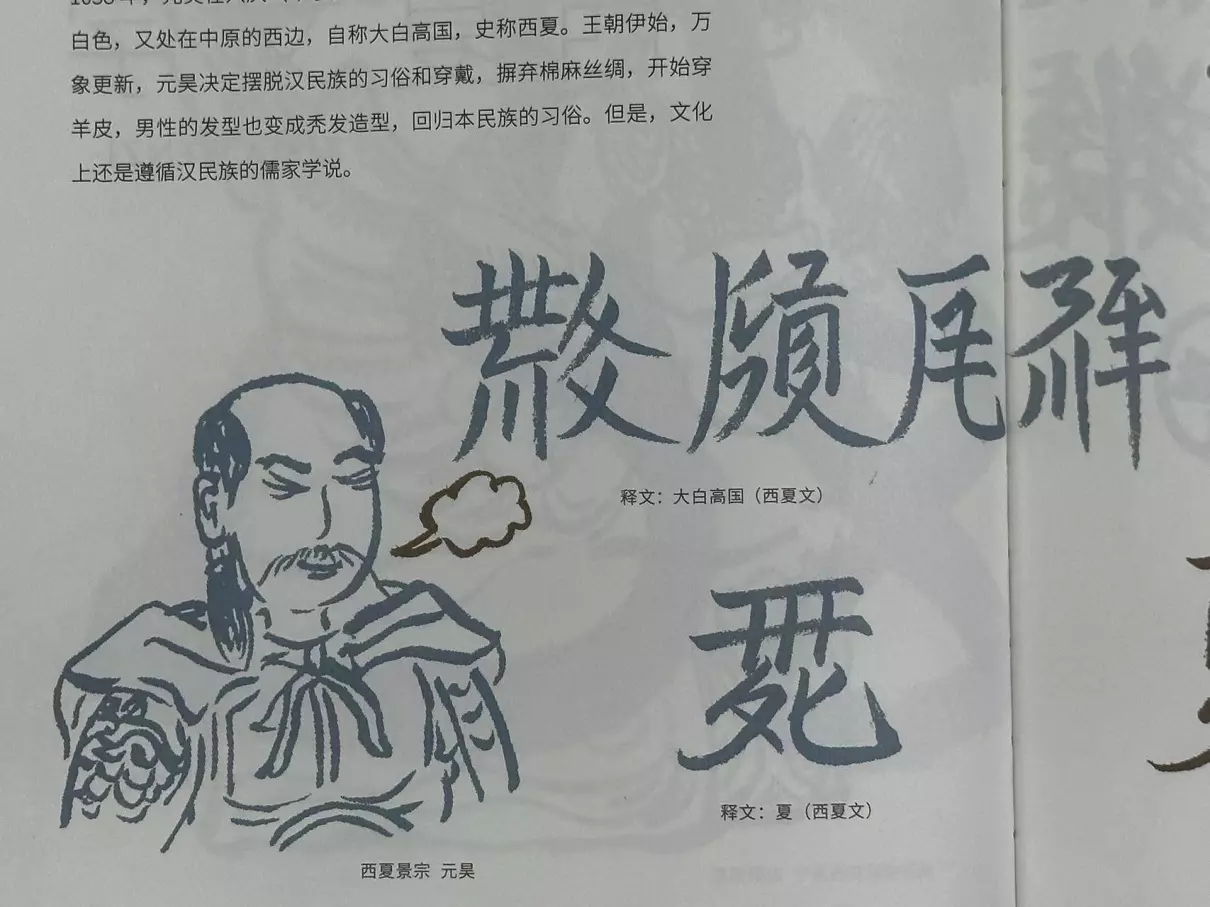 白色，又处在中原的西边，自称大白高国，史称西夏。王朝伊始，万
象更新，元昊决定摆脱汉民族的习俗和穿戴，摒弃棉麻丝绸，开始穿
羊皮，男性的发型也变成秃发造型，回归本民族的习俗。但是，文化
上还是遵循汉民族的儒家学说。
释文：大白高国（西夏文）
释文：夏（西夏文）
西夏景宗 元昊